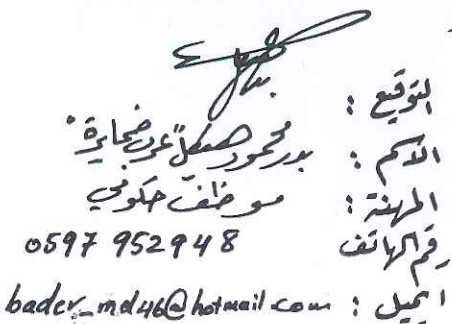 التوقيع :
الاسم : بدر محمود هيكل "عرب ضمايرة"
المهنة : موظف حكومي
رقم الهاتف 0597 952948
ايميل : bader_md46@hotmail.com